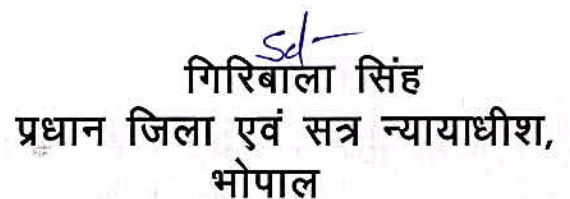 Sd/-
गिरिबाला सिंह
प्रधान जिला एवं सत्र न्यायाधीश,
भोपाल